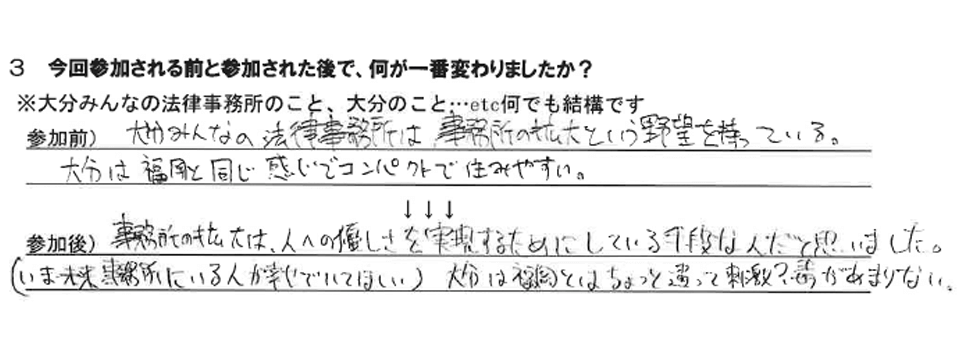 3 今回参加される前と参加された後で、何が一番変わりましたか？
※大分みんなの法律事務所のこと、大分のこと…etc何でも結構です
参加前) 大分みんなの法律事務所は 事務所の拡大という野望を持っている。
大分は福岡と同じ感じでコンパクトで住みやすい。
↓↓↓
参加後) 事務所の拡大は、人への優しさを実現するためにしている手段なんだと思いました。
(いま未来事務所にいる人が幸せでいてほしい) 大分は福岡とはちょっと違って刺激?があまりない。